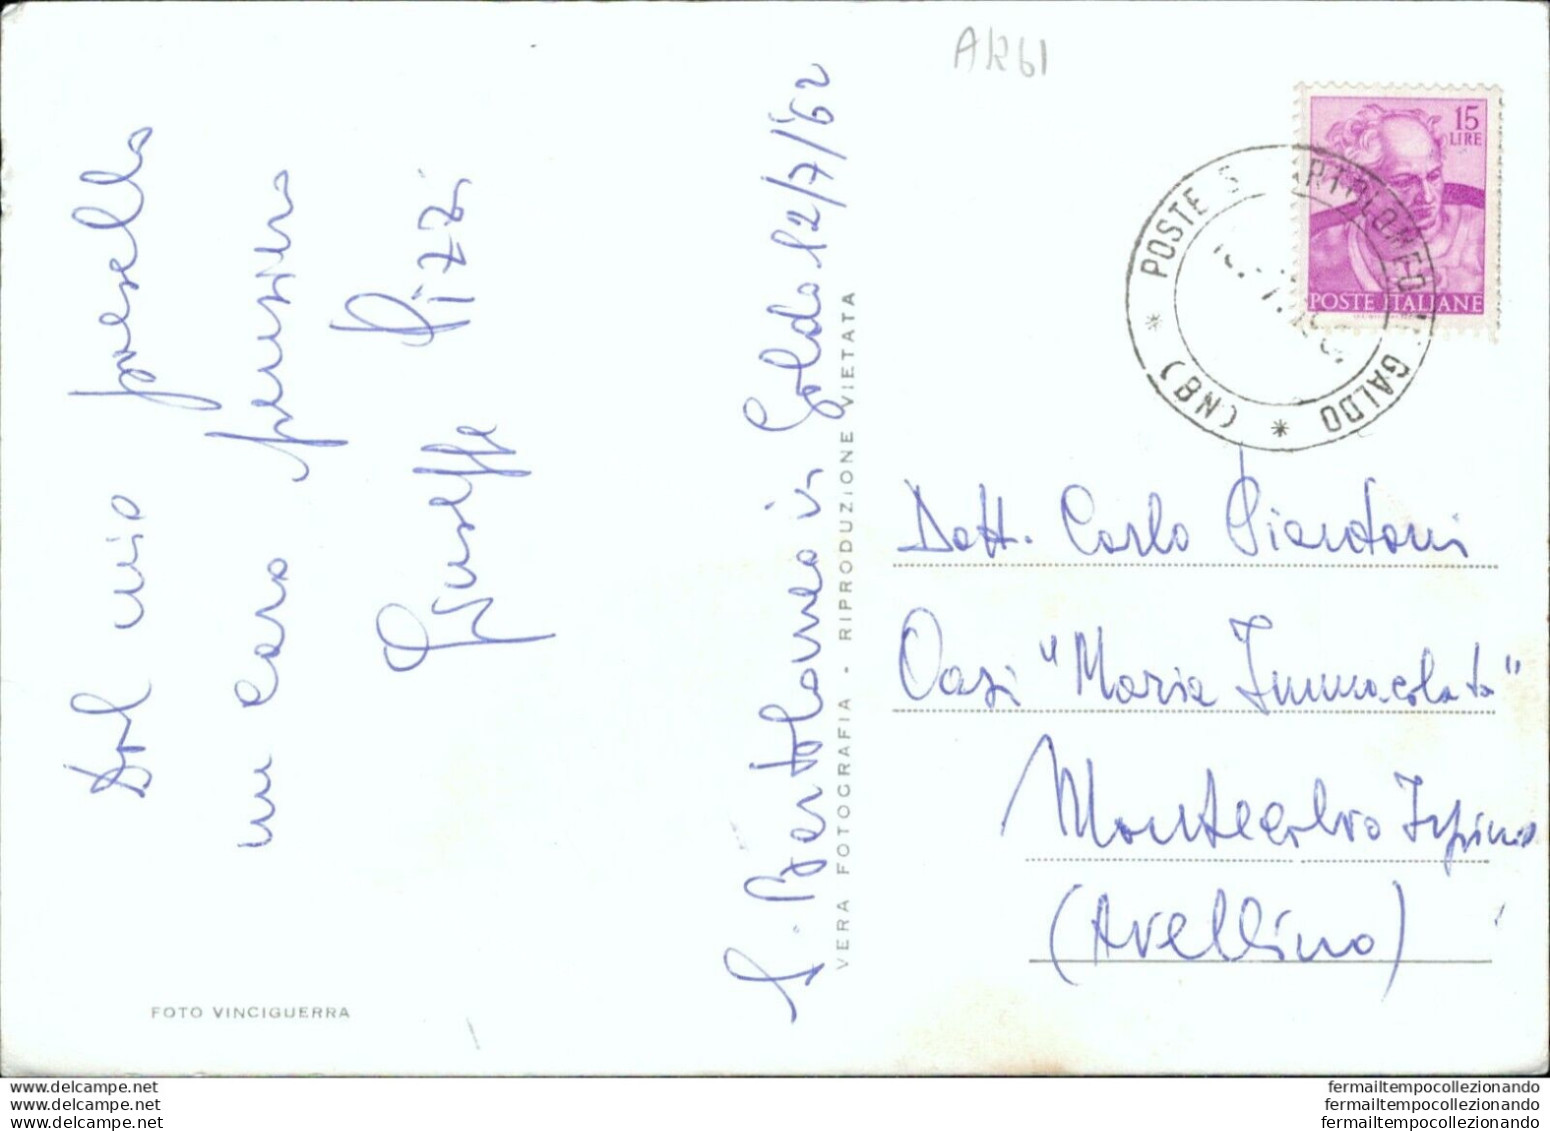 AR61
15
LIRE
POSTE ITALIANE
POSTE S. BARTOLOMEO GALDO
(BN)
Dal mio paesello
un caro pensiero
Giuseppe Pizzi
S. Bartolomeo in Galdo 12/7/'62
VERA FOTOGRAFIA - RIPRODUZIONE VIETATA
Dott. Carlo
Oasi "Maria Immacolata"
Montecalvo Irpino
(Avellino)
FOTO VINCIGUERRA
www.delcampe.net
www.delcampe.net
www.delcampe.net
fermailtempocollezionando
fermailtempocollezionando
fermailtempocollezionando